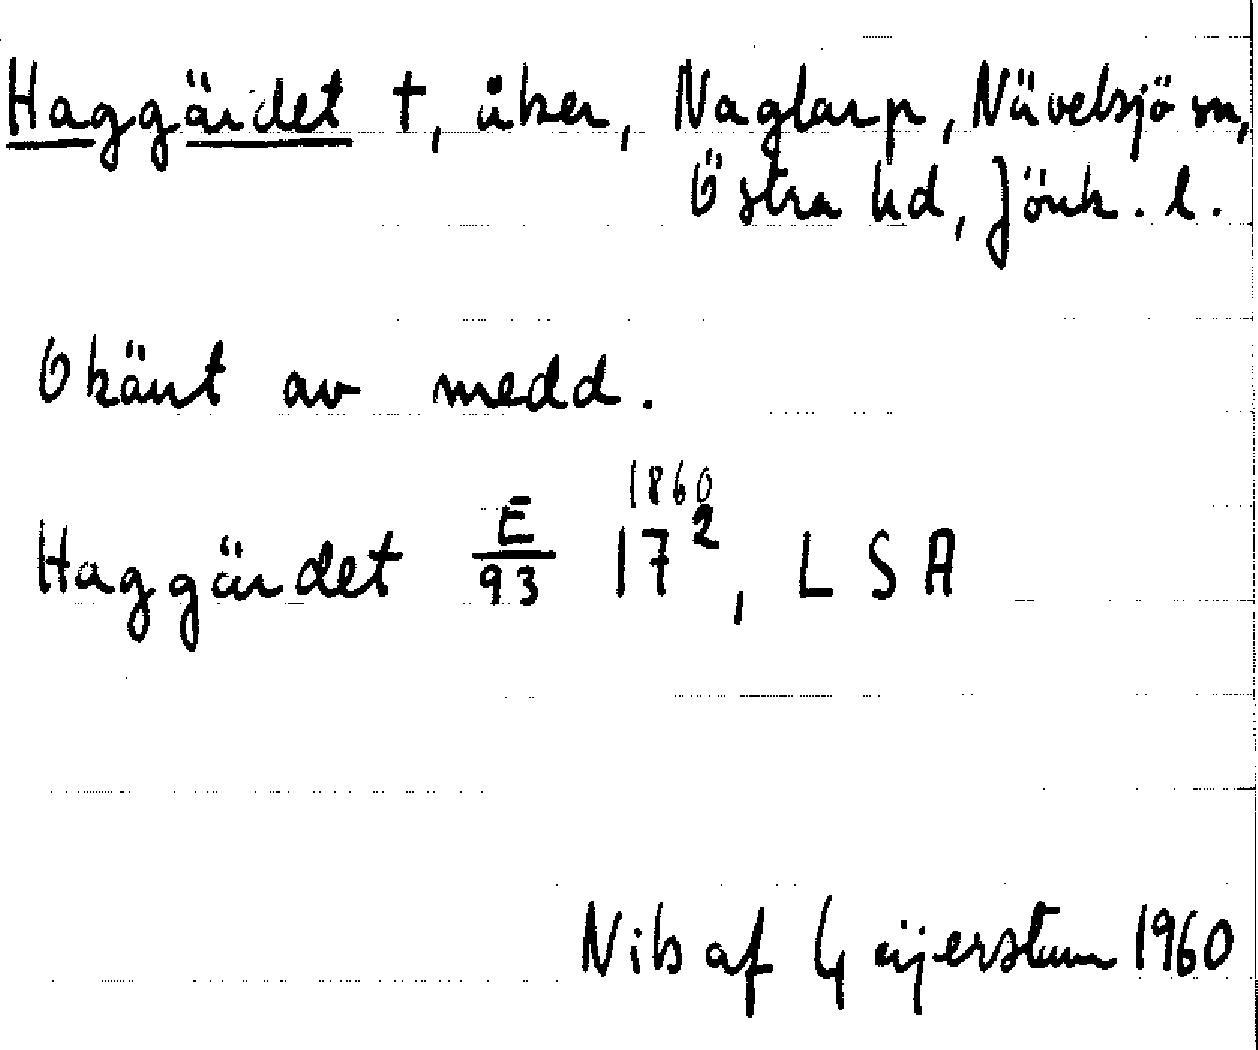 Haggärdet †, åker, Naglarp, Nävelsjö sn,
Östra hd, Jönk. l.
Okänt av medd.
1860
Haggärdet E/93 17², LSA
Nils af Geijerstam 1960